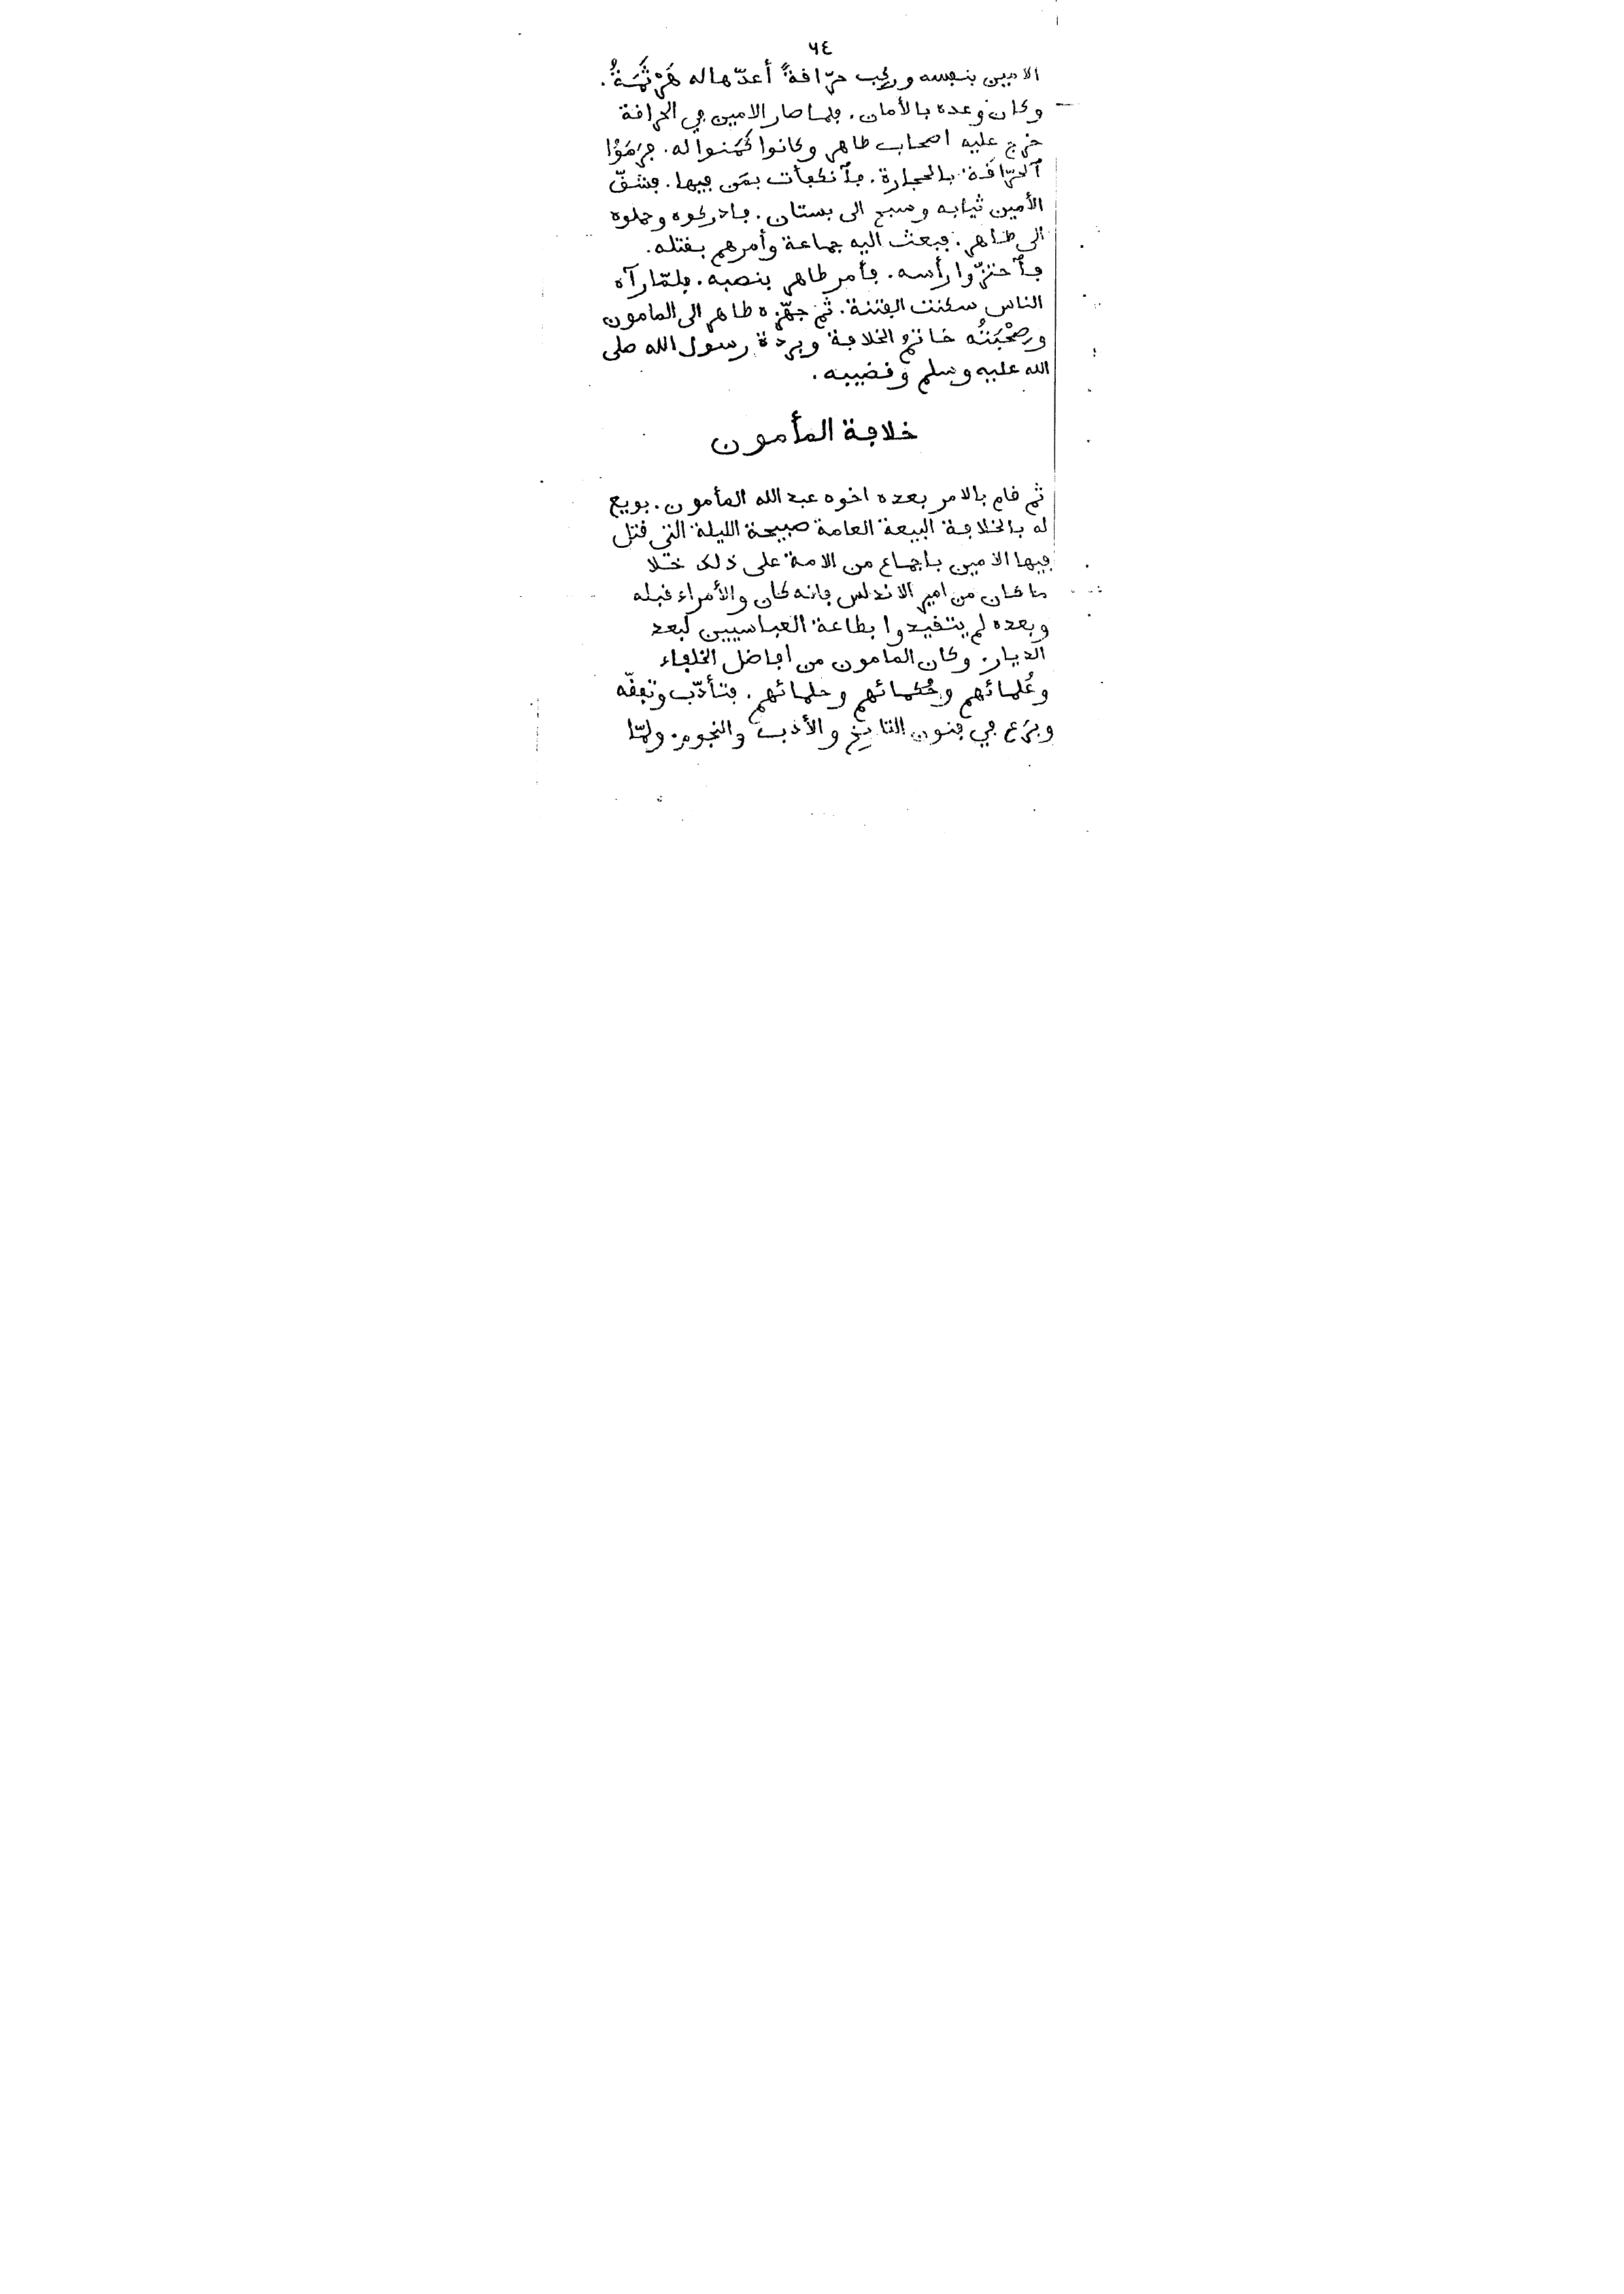 ٦٤
الامين بنفسه وركب حرّافةً أعدّها له هَرْثَمَةُ.
وكان وعده بالأمان. فلما صار الامين في الحرافة
خرج عليه اصحاب طاهر وكانوا كَمَنوا له. فرَمَوْا
ٱلحرّافَة بالحجارة. فٱنكفأت بمَن فيها. فشقّ
الأمين ثيابه وسبح الى بستان. فادركوه وحملوه
الى طاهر. فبعث اليه جماعة وأمرهم بقتله.
فٱحتزّوا رأسه. فأمر طاهر بنصبه. فلمّا رآه
الناس سكنت الفتنة. ثم جهّزه طاهر الى المامون
وصُحْبَتُه خاتم الخلافة وبردة رسول الله صلى
الله عليه وسلم وقضيبه.
خلافة المأمون
ثم قام بالامر بعده اخوه عبد الله المأمون. بويع
له بالخلافة البيعة العامة صبيحة الليلة التي قتل
فيها الامين باجماع من الامة على ذلك خلا
ما كان من امير الاندلس فانه كان والأمراء قبله
وبعده لم يتقيدوا بطاعة العباسيين لبعد
الديار. وكان المامون من افاضل الخلفاء
وعُلمائهم وحُكمائهم وحلمائهم. فتأدّب وتفقّه
وبرَع في فنون التاريخ والأدب والنجوم. ولمّا